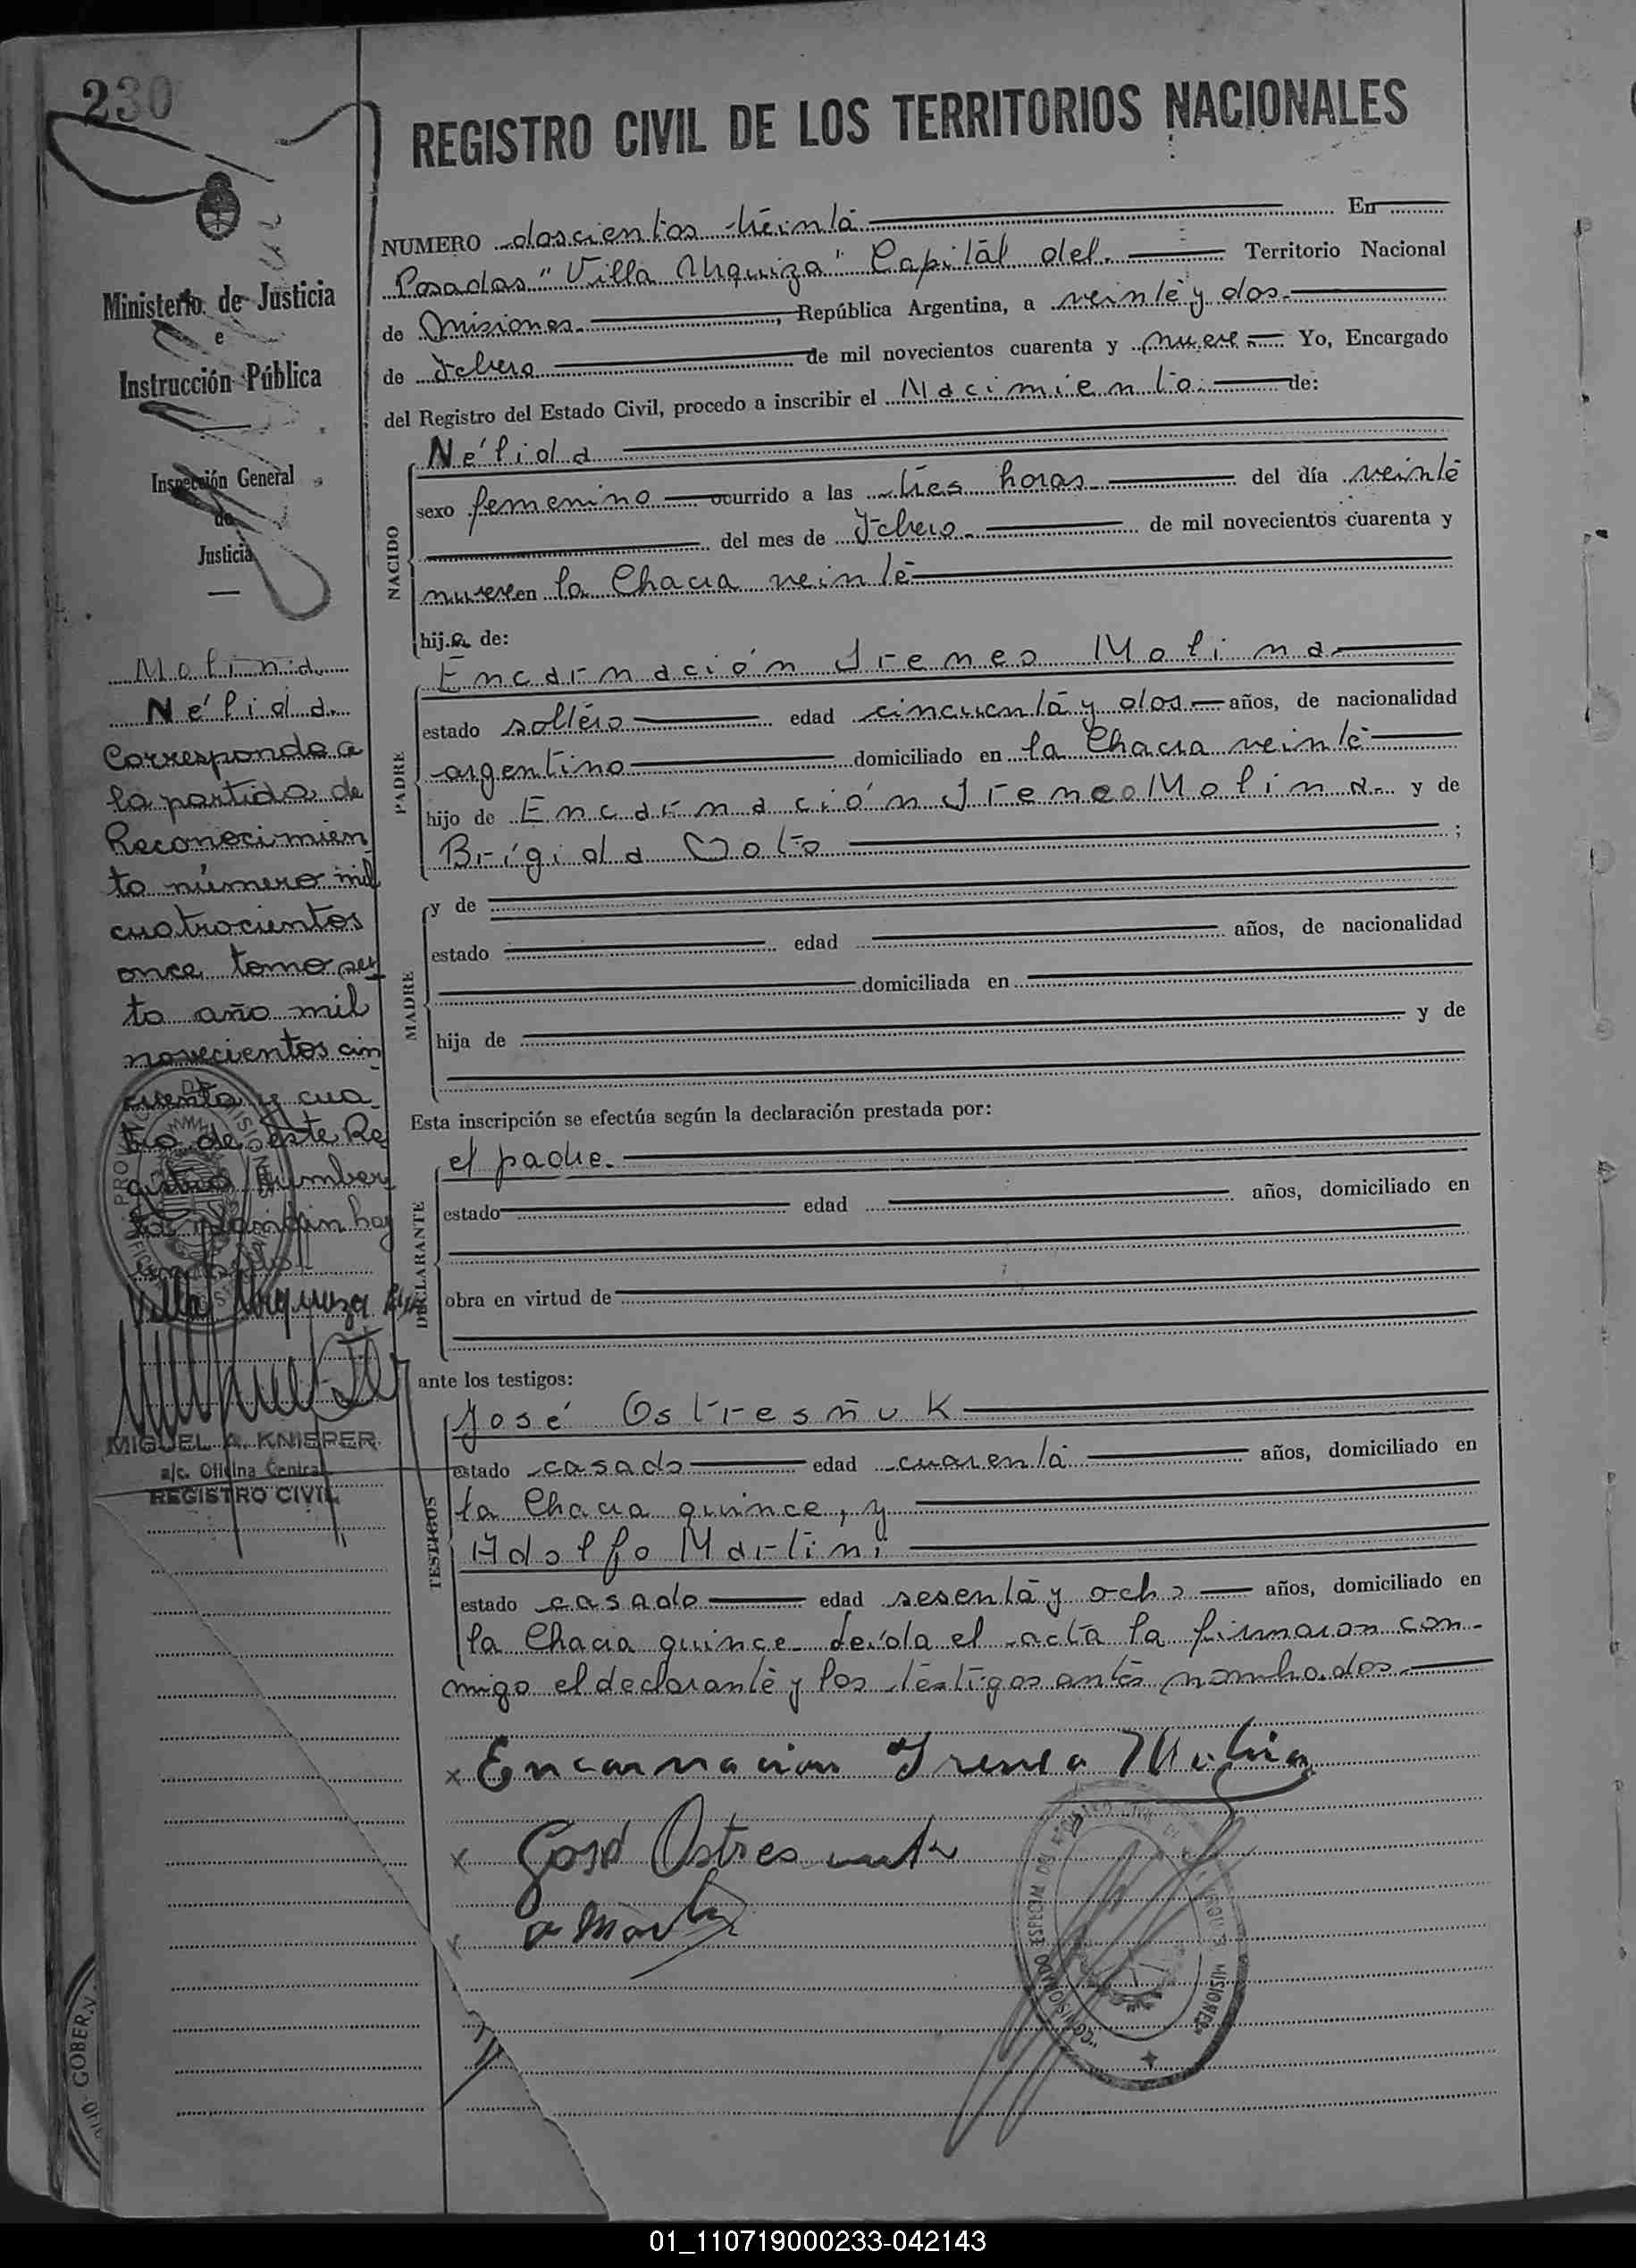 230
REGISTRO CIVIL DE LOS TERRITORIOS NACIONALES
Ministerio de Justicia
e
Instrucción Pública
Inspección General
de
Justicia
Molina
Nélida
Corresponde a
la partida de
Reconocimien
to número mil
cuatrocientos
once tomo
to año mil
novecientos cin
cuenta y cua
tro de este Re
gistro
hoy
Villa Urquiza
MIGUEL A. KNIEPER
a/c. Oficina Central
REGISTRO CIVIL
NUMERO doscientos treinta En
Posadas "Villa Urquiza" Capital del Territorio Nacional
de Misiones, República Argentina, a veinte y dos
de Febrero de mil novecientos cuarenta y nueve Yo, Encargado
del Registro del Estado Civil, procedo a inscribir el Nacimiento de:
NACIDO
Nélida
sexo femenino ocurrido a las tres horas del día veinte
del mes de Febrero de mil novecientos cuarenta y
nueve en la Chacra veinte
hija de:
PADRE
Encarnación Ireneo Molina
estado soltero edad cincuenta y dos años, de nacionalidad
argentino domiciliado en la Chacra veinte
hijo de Encarnación Ireneo Molina y de
Brígida Soto;
MADRE
y de
estado edad años, de nacionalidad
domiciliada en
hija de y de
Esta inscripción se efectúa según la declaración prestada por:
DECLARANTE
el padre.
estado edad años, domiciliado en
obra en virtud de
ante los testigos:
TESTIGOS
José Ostresñuk
estado casado edad cuarenta años, domiciliado en
la Chacra quince, y
Adolfo Martini
estado casado edad sesenta y ocho años, domiciliado en
la Chacra quince leída el acta la firmaron con-
migo el declarante y los testigos antes nombrados
x Encarnacion Ireneo Molina
x José Ostresñuk
x
MISIONES
GOBERN
01_110719000233-042143